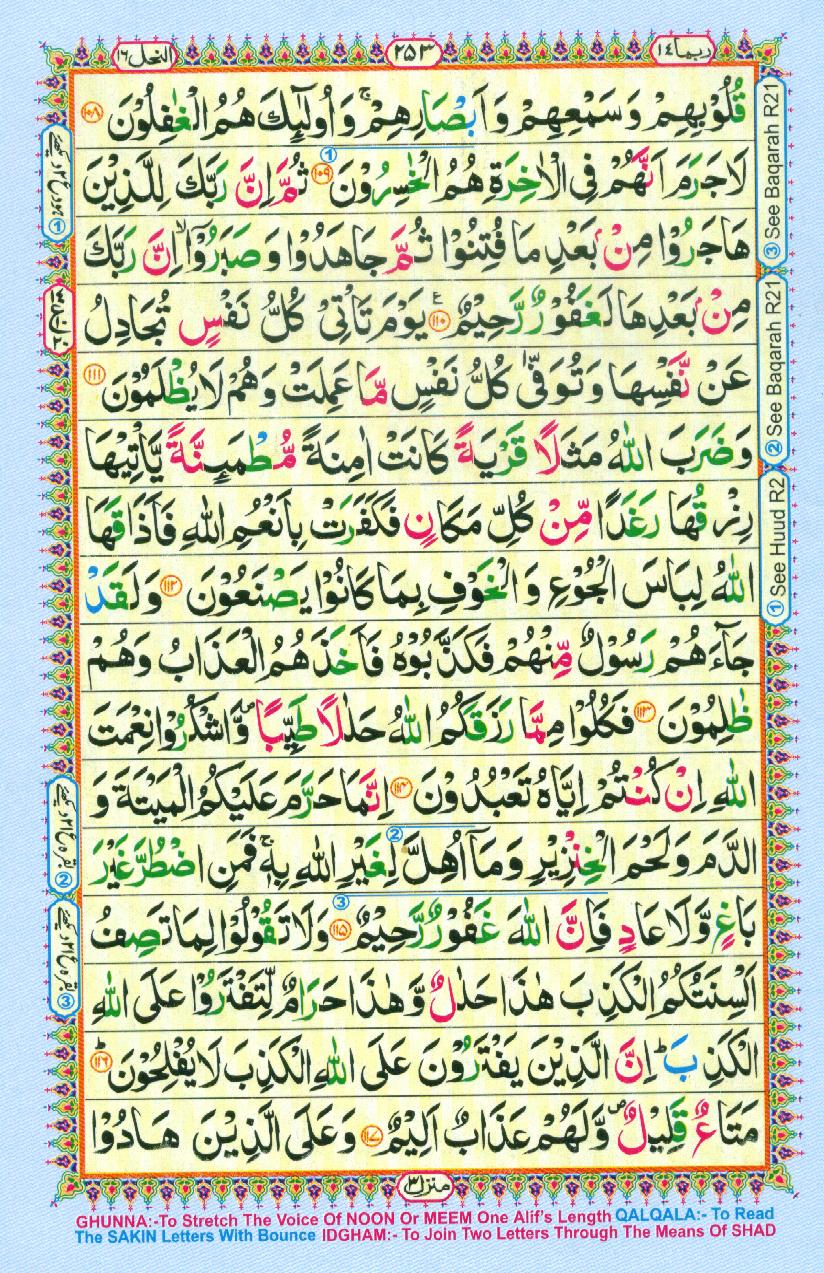 ربما ١٤
٢٥٣
النحل ١٦
قُلُوْبِهِمْ وَسَمْعِهِمْ وَاَبْصَارِهِمْ ۚ وَاُولٰٓئِكَ هُمُ الْغٰفِلُوْنَ ١٠٨
لَاجَرَمَ اَنَّهُمْ فِى الْاٰخِرَةِ هُمُ الْخٰسِرُوْنَ ١٠٩ ثُمَّ اِنَّ رَبَّكَ لِلَّذِيْنَ
هَاجَرُوْا مِنْۢ بَعْدِ مَا فُتِنُوْا ثُمَّ جَاهَدُوْا وَصَبَرُوْۤا ۙ اِنَّ رَبَّكَ
مِنْۢ بَعْدِهَا لَغَفُوْرٌ رَّحِيْمٌ ١١٠ ع يَوْمَ تَاْتِىْ كُلُّ نَفْسٍ تُجَادِلُ
عَنْ نَّفْسِهَا وَتُوَفّٰى كُلُّ نَفْسٍ مَّا عَمِلَتْ وَهُمْ لَا يُظْلَمُوْنَ ١١١
وَضَرَبَ اللّٰهُ مَثَلًا قَرْيَةً كَانَتْ اٰمِنَةً مُّطْمَئِنَّةً يَّاْتِيْهَا
رِزْقُهَا رَغَدًا مِّنْ كُلِّ مَكَانٍ فَكَفَرَتْ بِاَنْعُمِ اللّٰهِ فَاَذَاقَهَا
اللّٰهُ لِبَاسَ الْجُوْعِ وَالْخَوْفِ بِمَا كَانُوْا يَصْنَعُوْنَ ١١٢ وَلَقَدْ
جَآءَهُمْ رَسُوْلٌ مِّنْهُمْ فَكَذَّبُوْهُ فَاَخَذَهُمُ الْعَذَابُ وَهُمْ
ظٰلِمُوْنَ ١١٣ فَكُلُوْا مِمَّا رَزَقَكُمُ اللّٰهُ حَلٰلًا طَيِّبًا ۪ وَّاشْكُرُوْا نِعْمَتَ
اللّٰهِ اِنْ كُنْتُمْ اِيَّاهُ تَعْبُدُوْنَ ١١٤ اِنَّمَا حَرَّمَ عَلَيْكُمُ الْمَيْتَةَ وَ
الدَّمَ وَلَحْمَ الْخِنْزِيْرِ وَمَاۤ اُهِلَّ لِغَيْرِ اللّٰهِ بِهٖ ۚ فَمَنِ اضْطُرَّ غَيْرَ
بَاغٍ وَّلَا عَادٍ فَاِنَّ اللّٰهَ غَفُوْرٌ رَّحِيْمٌ ١١٥ وَلَا تَقُوْلُوْا لِمَا تَصِفُ
اَلْسِنَتُكُمُ الْكَذِبَ هٰذَا حَلٰلٌ وَّهٰذَا حَرَامٌ لِّتَفْتَرُوْا عَلَى اللّٰهِ
الْكَذِبَ ؕ اِنَّ الَّذِيْنَ يَفْتَرُوْنَ عَلَى اللّٰهِ الْكَذِبَ لَا يُفْلِحُوْنَ ؕ ١١٦
مَتَاعٌ قَلِيْلٌ ۪ وَّلَهُمْ عَذَابٌ اَلِيْمٌ ١١٧ وَعَلَى الَّذِيْنَ هَادُوْا
③ See Baqarah R21
② See Baqarah R21
① See Huud R2
منزل ٣
GHUNNA:-To Stretch The Voice Of NOON Or MEEM One Alif's Length QALQALA:- To Read
The SAKIN Letters With Bounce IDGHAM:- To Join Two Letters Through The Means Of SHAD